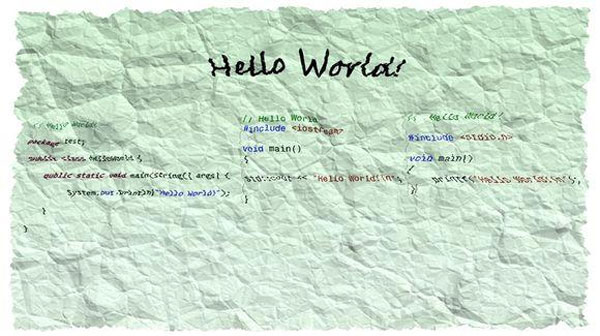 Hello World!
// Hello World!
package test;
public class HelloWorld {
public static void main(String[] args) {
System.out.println("Hello World!");
}
}
// Hello World
#include <iostream>
void main()
{
std::cout << "Hello World!\n";
}
// Hello World!
#include <stdio.h>
void main()
{
printf("Hello World!\n");
}